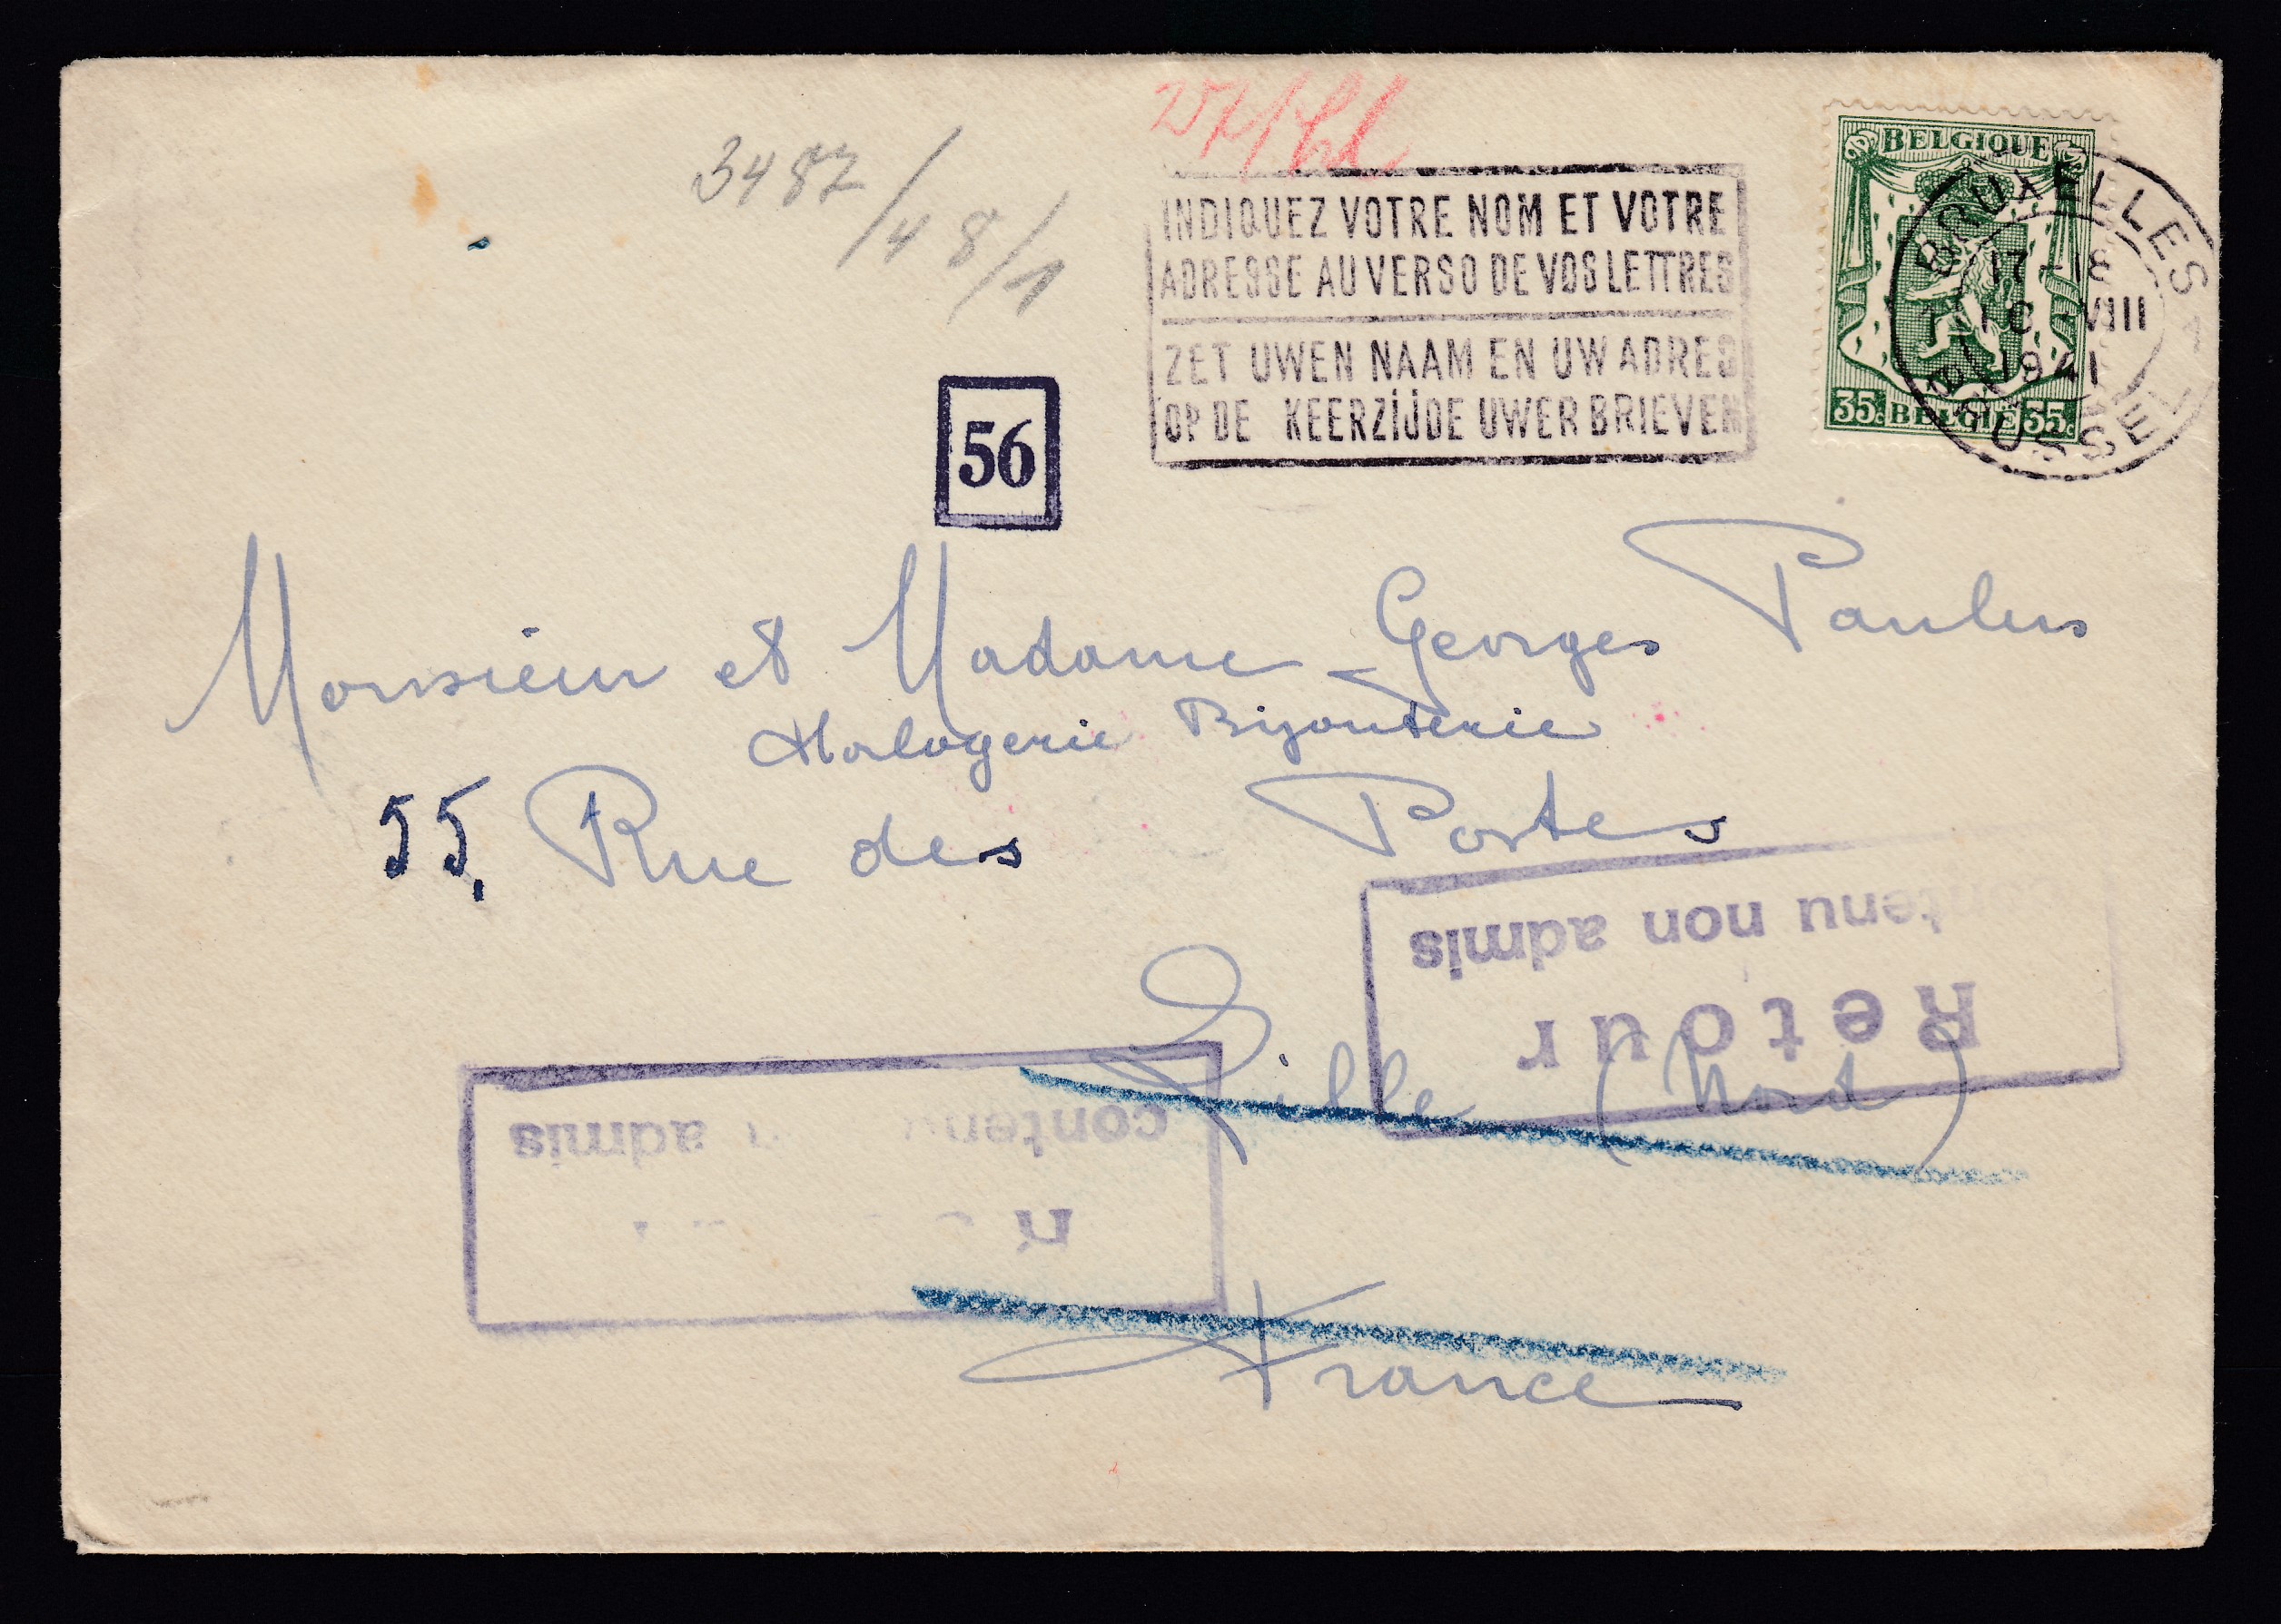 3487/48/1
INDIQUEZ VOTRE NOM ET VOTRE
ADRESSE AU VERSO DE VOS LETTRES
ZET UWEN NAAM EN UW ADRES
OP DE KEERZIJDE UWER BRIEVEN
BELGIQUE
35c BELGIË 35c
BRUXELLES
17-18
VIII
1941
BRUSSEL
56
Monsieur et Madame Georges Paulus
Horlogerie Bijouterie
55, Rue des Postes
Lille (Nord)
France
Retour
contenu non admis
contenu admis